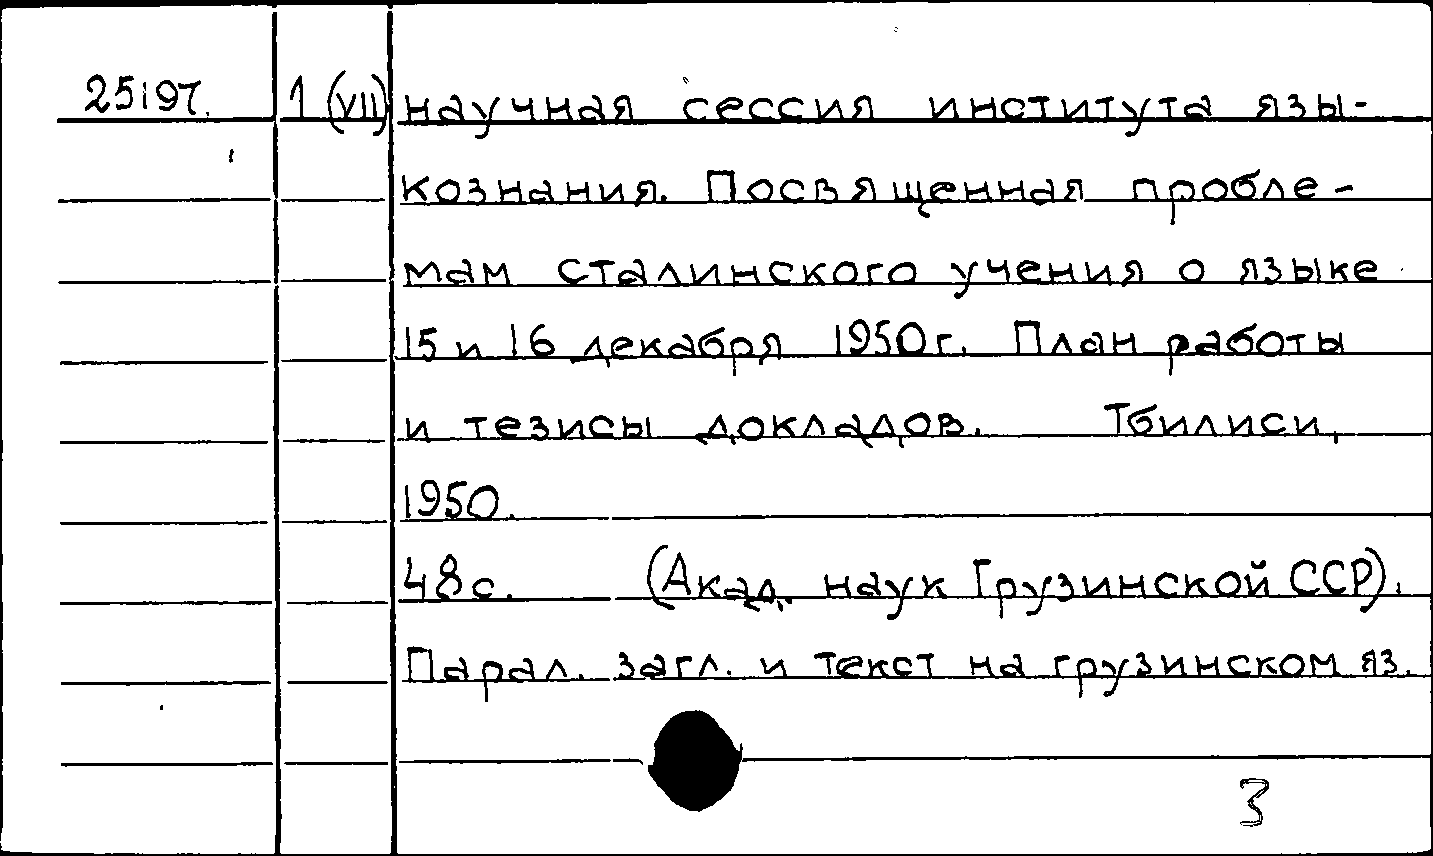 25197. 1 (VII) научная сессия института язы-
кознания. Посвященная пробле-
мам сталинского учения о языке
15 и 16 декабря 1950 г. План работы
и тезисы докладов. Тбилиси,
1950.
48 с. (Акад. наук Грузинской ССР).
Парал. загл. и текст на грузинском яз.
3